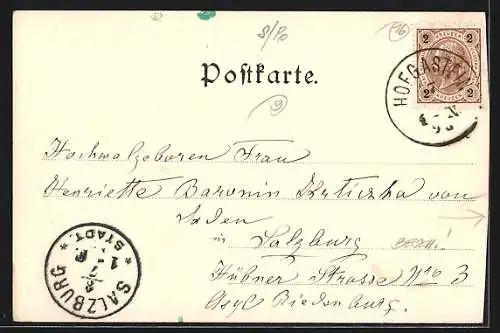 S/Po
16
Postkarte.
2 2
2 2
HOFGASTEIN
9
Hochwalgeboren Frau
Henriette Baronin Krticzka von
Jaden
in Salzburg
Hübner Strasse No 3
Asyl Riedenburg.
SALZBURG
* STADT. *
8
7